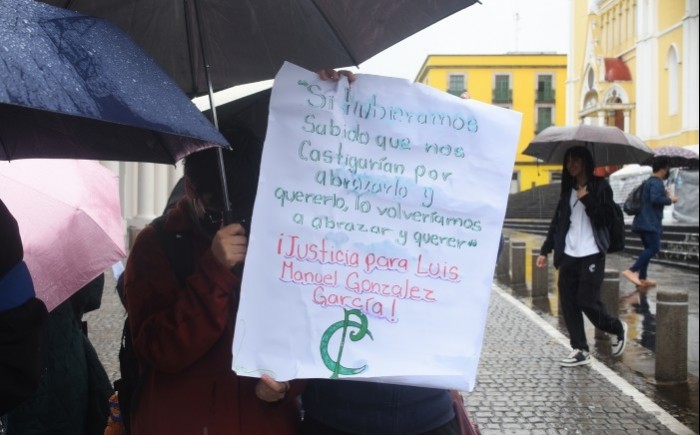 "Si hubiéramos
Sabido que nos
Castigarían por
abrazarlo y
quererlo, lo volveríamos
a abrazar y querer"
¡Justicia para Luis
Manuel Gonzalez
García!